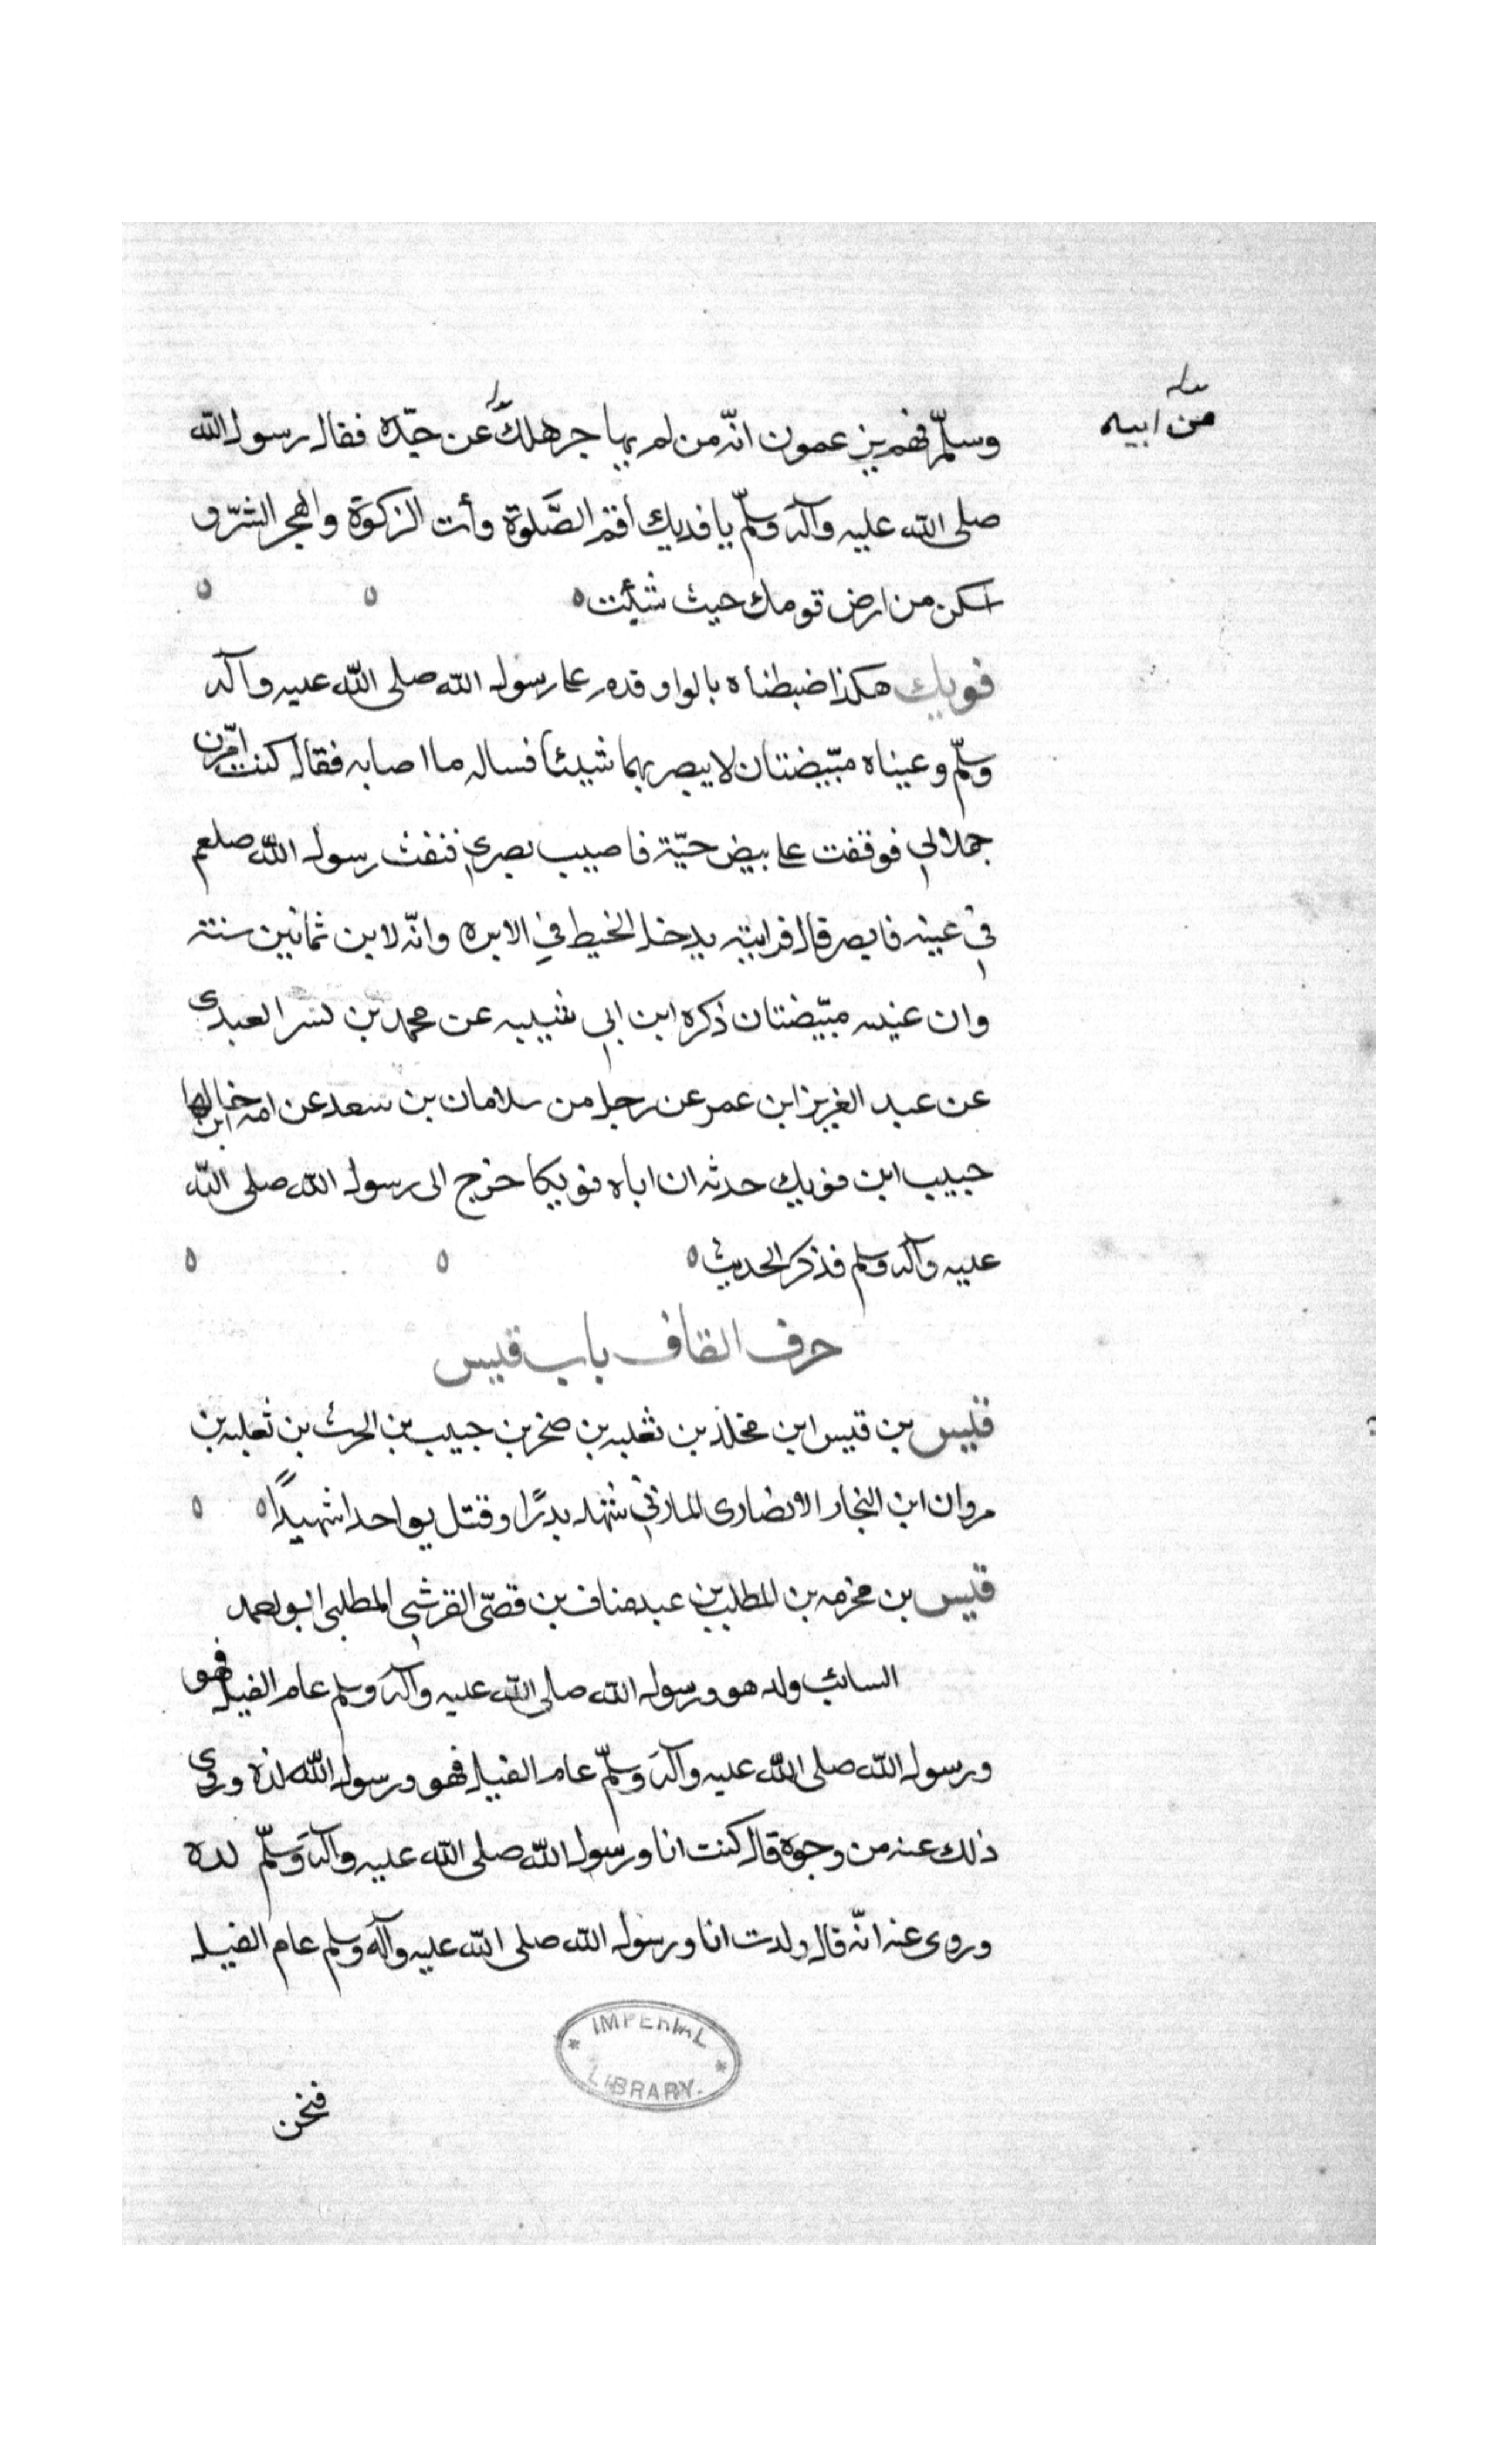 من ابيه
وسلّم فهم يزعمون انّه من لم يهاجر هلك عن جدّه فقال رسول الله
صلى الله عليه وآله وسلّم يا فديك أقم الصَّلوة وأت الزكوة واهجر الشرّ و
اسكن من ارض قومك حيث شئت
فويك هكذا ضبطناه بالواو قدم على رسول الله صلى الله عليه وآله
وسلّم وعيناه مبيّضتان لا يبصر بهما شيئا فساله ما اصابه فقال كنت امّرن
جملا لي فوقفت على بيض حيّة فاصيب بصري فنفث رسول الله صلعم
في عينه فابصر قال فرايته يدخل الخيط في الابره وانّه لابن ثمانين سنة
وان عينيه مبيّضتان ذكره ابن ابي شيبه عن محمد بن بشر العبدى
عن عبد العزيز ابن عمر عن رجل من سلامان بن سعد عن امه ان خالها
حبيب ابن فويك حدثه ان اباه فويكا خرج الى رسول الله صلى الله
عليه وآله وسلم فذكر الحديث
حرف القاف باب قيس
قيس بن قيس ابن مخلد بن ثعلبه بن صخر بن حبيب بن الحرث بن ثعلبه بن
مروان ابن النجار الانصارى المازني شهد بدرًا وقتل يوم احد شهيدًا
قيس بن مخرمه بن المطلب بن عبد مناف بن قصّى القرشي المطلبى ابو
السائب ولد هو ورسول الله صلى الله عليه وآله وسلم عام الفيل فهو
ورسول الله صلى الله عليه وآله وسلّم عام الفيل فهو ورسول الله لدة وروى
ذلك عنه من وجوه قال كنت انا ورسول الله صلى الله عليه وآله وسلّم لده
وروى عنه انّه قال ولدت انا ورسول الله صلى الله عليه وآله وسلم عام الفيل
IMPERIAL
LIBRARY.
فنحن